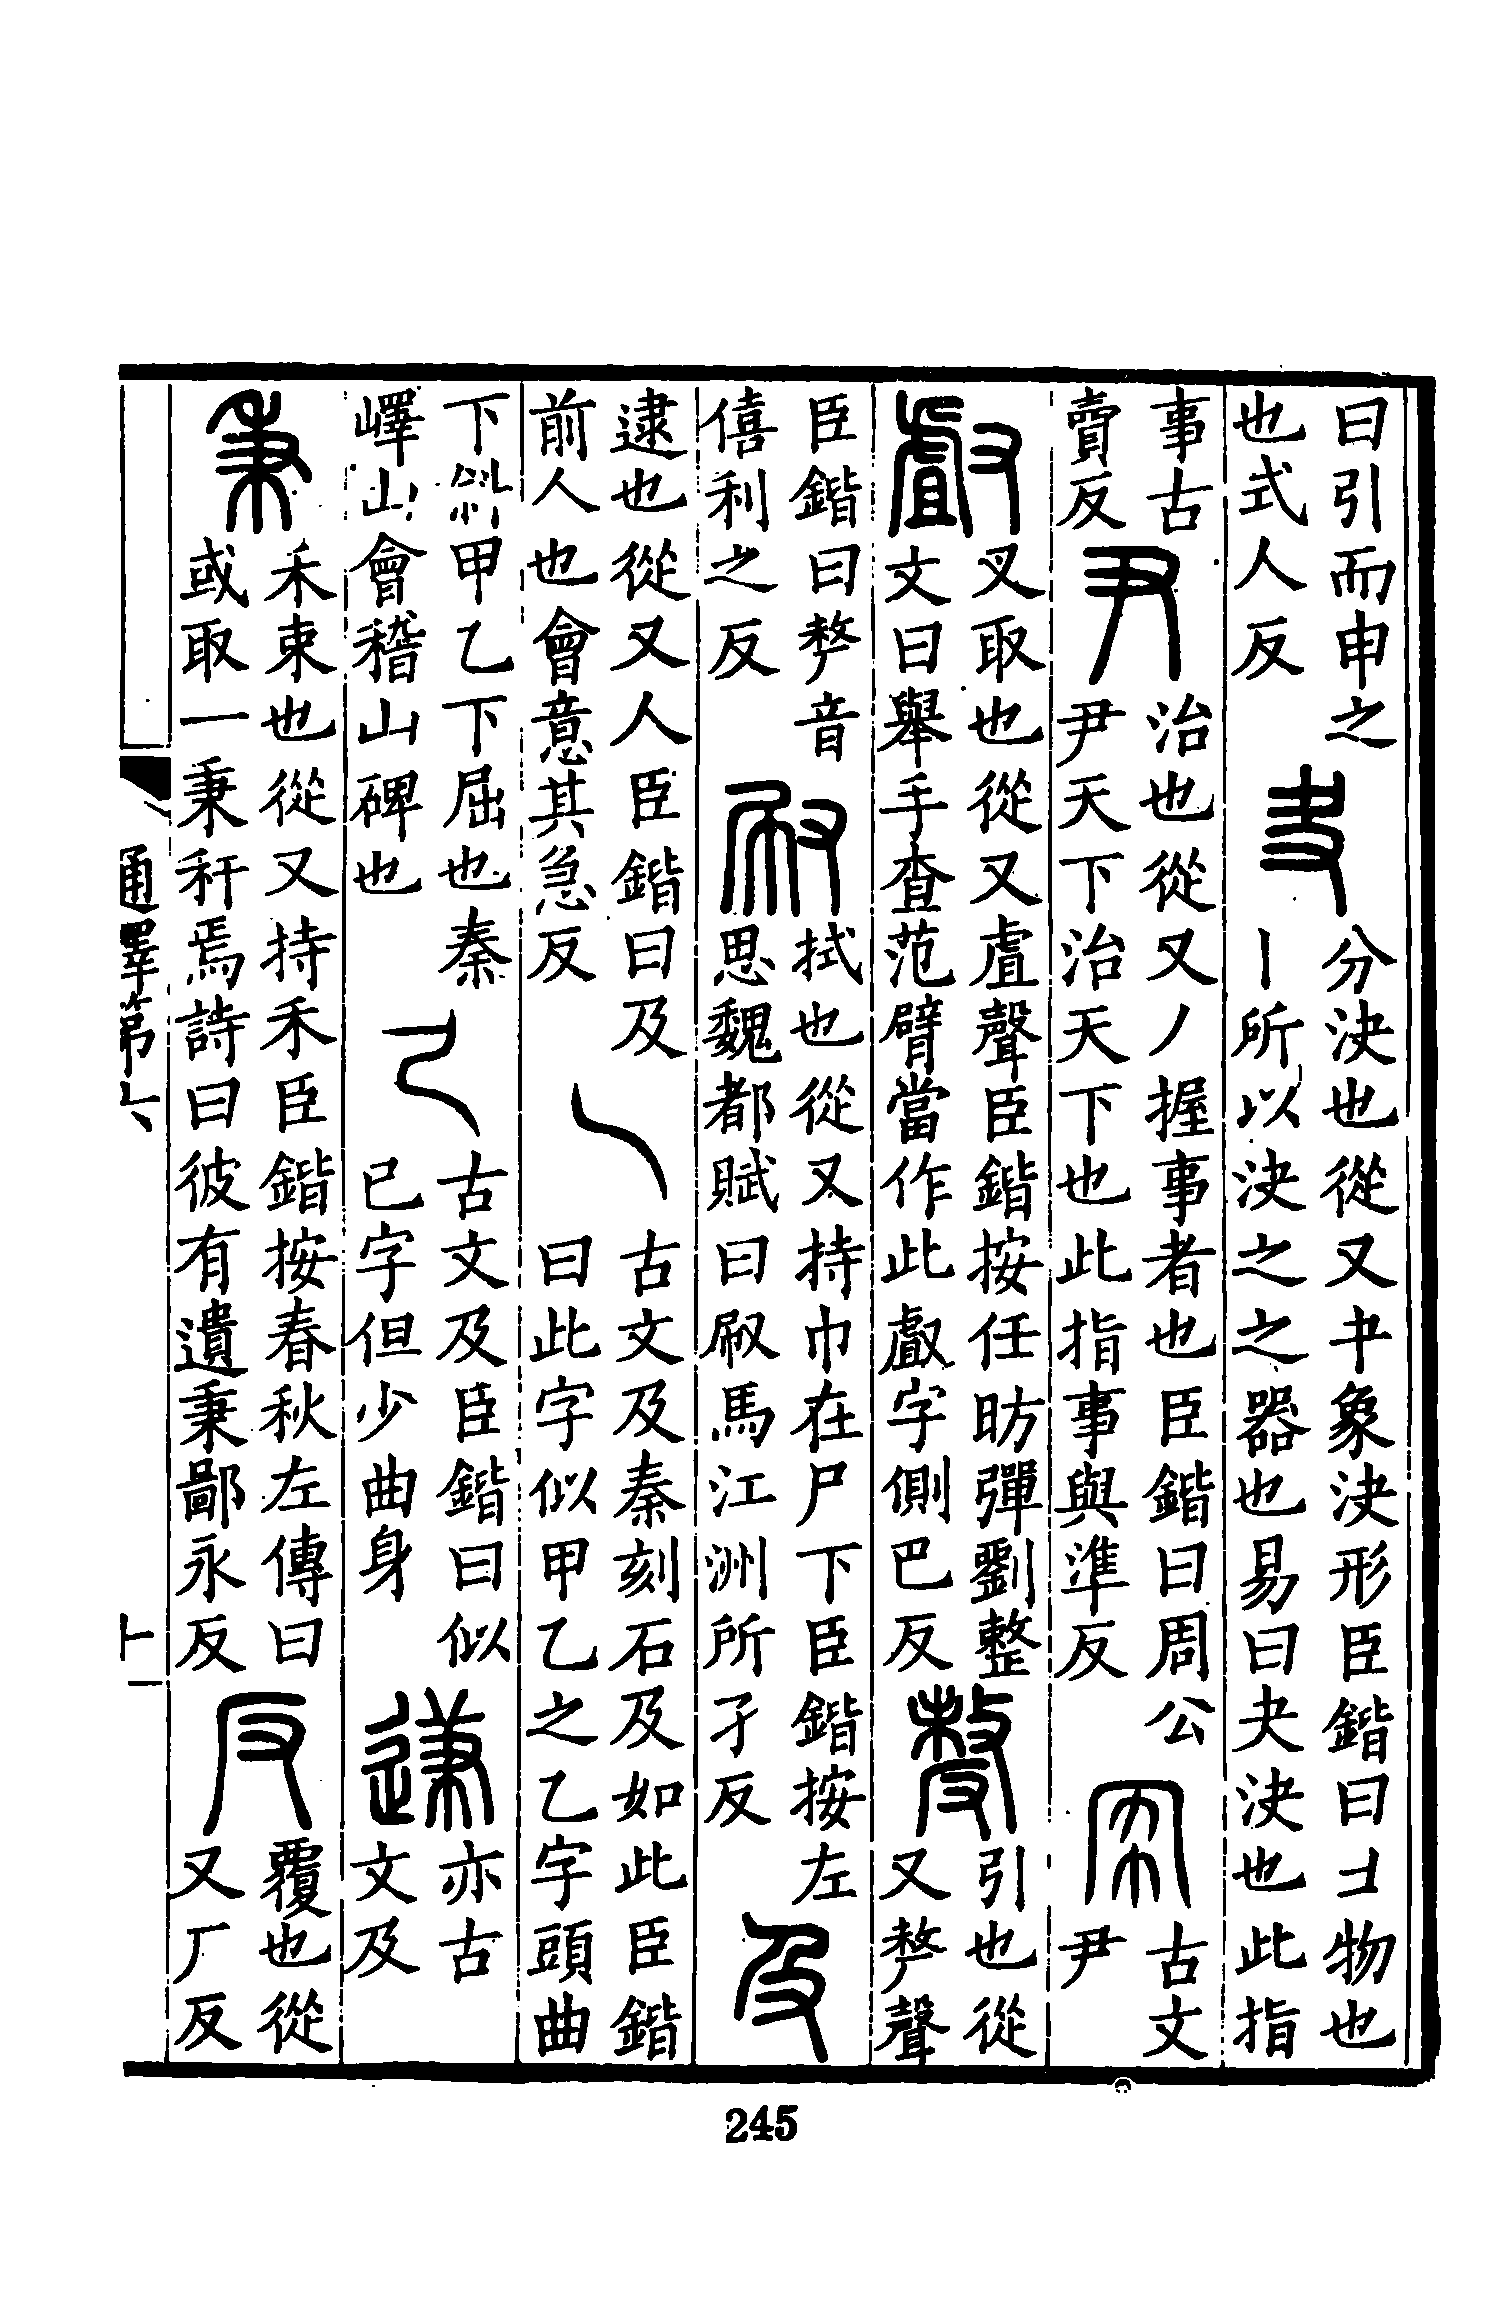 曰引而申之
也式人反
夬
分決也從又㐄象決形臣鍇曰コ物也
丨所以決之之器也易曰夬決也此指
事古
賣反
尹
治也從又丿握事者也臣鍇曰周公
尹天下治天下也此指事與準反
古文
尹
𠭯
叉取也從又虘聲臣鍇按任昉彈劉整
文曰舉手查范臂當作此𠭯字側巴反
𠭰
引也從
又𠩺聲
臣鍇曰𠩺音
僖利之反
㕞
拭也從又持巾在尸下臣鍇按左
思魏都賦曰㕞馬江洲所孑反
及
逮也從又人臣鍇曰及
前人也會意其急反
乁
古文及秦刻石及如此臣鍇
曰此字似甲乙之乙字頭曲
下斜甲乙下屈也秦
嶧山會稽山碑也
古文及臣鍇曰似
已字但少曲身
亦古
文及
秉
禾束也從又持禾臣鍇按春秋左傳曰
或取一秉秆焉詩曰彼有遺秉鄙永反
反
覆也從
又厂反
通釋第六
十一
245